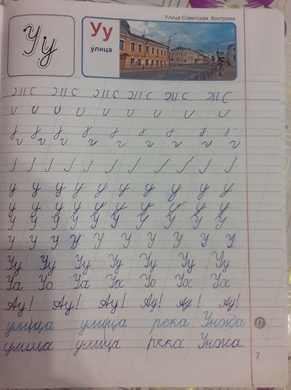 Улица Советская. Кострома
Уу
Уу
улица
у у у у у у у у у
у у у у у у у у у
У У У У У У У У У
У У У У У У У У У
Уу Уу Уу Уу Уу Уу Уу
Уа Уо Уа Уа Уо Уа
Ау! Ау! Ау! Ау! Ау! Ау!
улица улица река Унжа
улица улица река Унжа
7